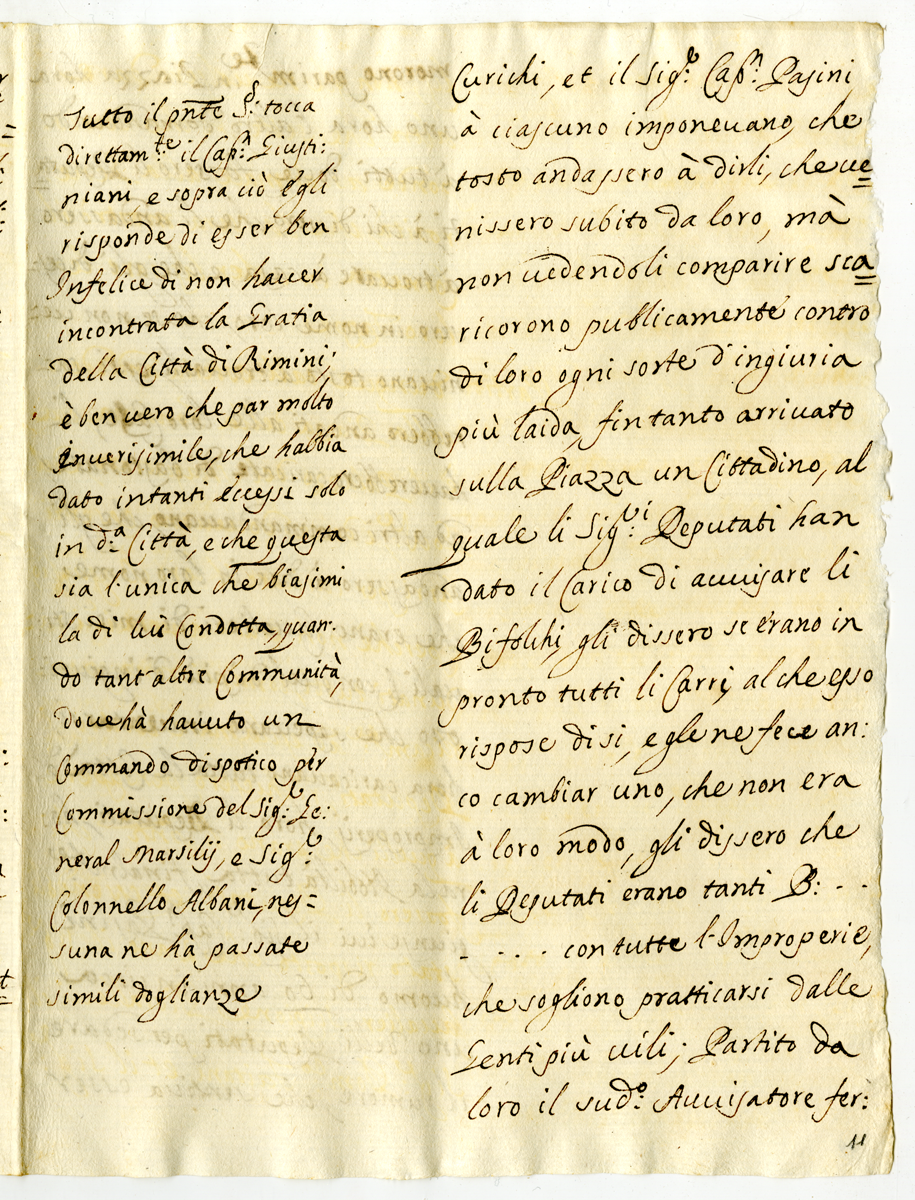 Tutto il pnte §: tocca
direttam:te il Cap:n Giusti:
niani, e sopra ciò egli
risponde di esser ben
Infelice di non haver
incontrata la Gratia
della Città di Rimini;
è ben vero che par molto
Inverisimile, che habbia
dato in tanti eccessi solo
in d:a Città, e che questa
sia l'unica che biasimi
la di lui Condotta, quan:
do tant'altre Communità,
dove hà havuto un
Commando dispotico per
Commissione del Sig:r Ge:
neral Marsilij, e Sig:r
Colonnello Albani, nes=
suna ne hà passate
simili doglianze
Curichi, et il Sig:r Cap:n Pasini,
à ciascuno imponevano, che
tosto andassero à dirli, che ve=
nissero subito da loro, mà
non vedendoli comparire sca=
ricorono publicamente contro
di loro ogni sorte d'ingiuria
più laida, fin tanto arrivato
sulla Piazza un Cittadino, al
quale li Sig:ri Deputati han
dato il Carico di avvisare li
Bifolchi, gli dissero se erano in
pronto tutti li Carri, al che esso
rispose di si, e gle ne fece an:
co cambiar uno, che non era
à loro modo, gli dissero che
li Deputati erano tanti B: . .
. . . . con tutte l'Improperie,
che sogliono pratticarsi dalle
Genti più vili; Partito da
loro il sud:o Avvisatore fer:
11